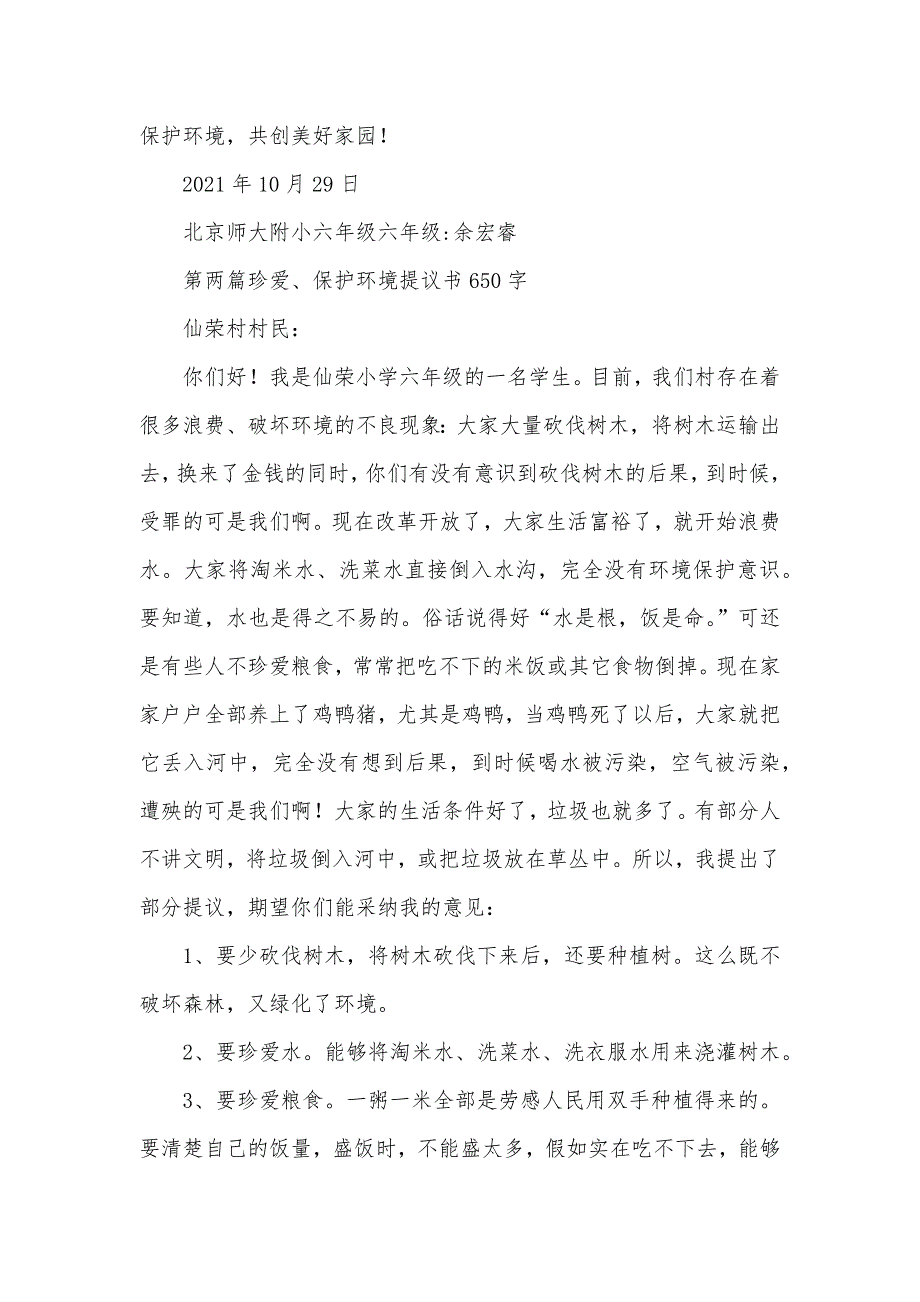 保护环境，共创美好家园！
2021 年 10 月 29 日
北京师大附小六年级六年级:余宏睿
第两篇珍爱、保护环境提议书 650 字
仙荣村村民：
你们好！我是仙荣小学六年级的一名学生。目前，我们村存在着
很多浪费、破坏环境的不良现象：大家大量砍伐树木，将树木运输出
去，换来了金钱的同时，你们有没有意识到砍伐树木的后果，到时候，
受罪的可是我们啊。现在改革开放了，大家生活富裕了，就开始浪费
水。大家将淘米水、洗菜水直接倒入水沟，完全没有环境保护意识。
要知道，水也是得之不易的。俗话说得好“水是根，饭是命。”可还
是有些人不珍爱粮食，常常把吃不下的米饭或其它食物倒掉。现在家
家户户全部养上了鸡鸭猪，尤其是鸡鸭，当鸡鸭死了以后，大家就把
它丢入河中，完全没有想到后果，到时候喝水被污染，空气被污染，
遭殃的可是我们啊！大家的生活条件好了，垃圾也就多了。有部分人
不讲文明，将垃圾倒入河中，或把垃圾放在草丛中。所以，我提出了
部分提议，期望你们能采纳我的意见：
1、要少砍伐树木，将树木砍伐下来后，还要种植树。这么既不
破坏森林，又绿化了环境。
2、要珍爱水。能够将淘米水、洗菜水、洗衣服水用来浇灌树木。
3、要珍爱粮食。一粥一米全部是劳感人民用双手种植得来的。
要清楚自己的饭量，盛饭时，不能盛太多，假如实在吃不下去，能够